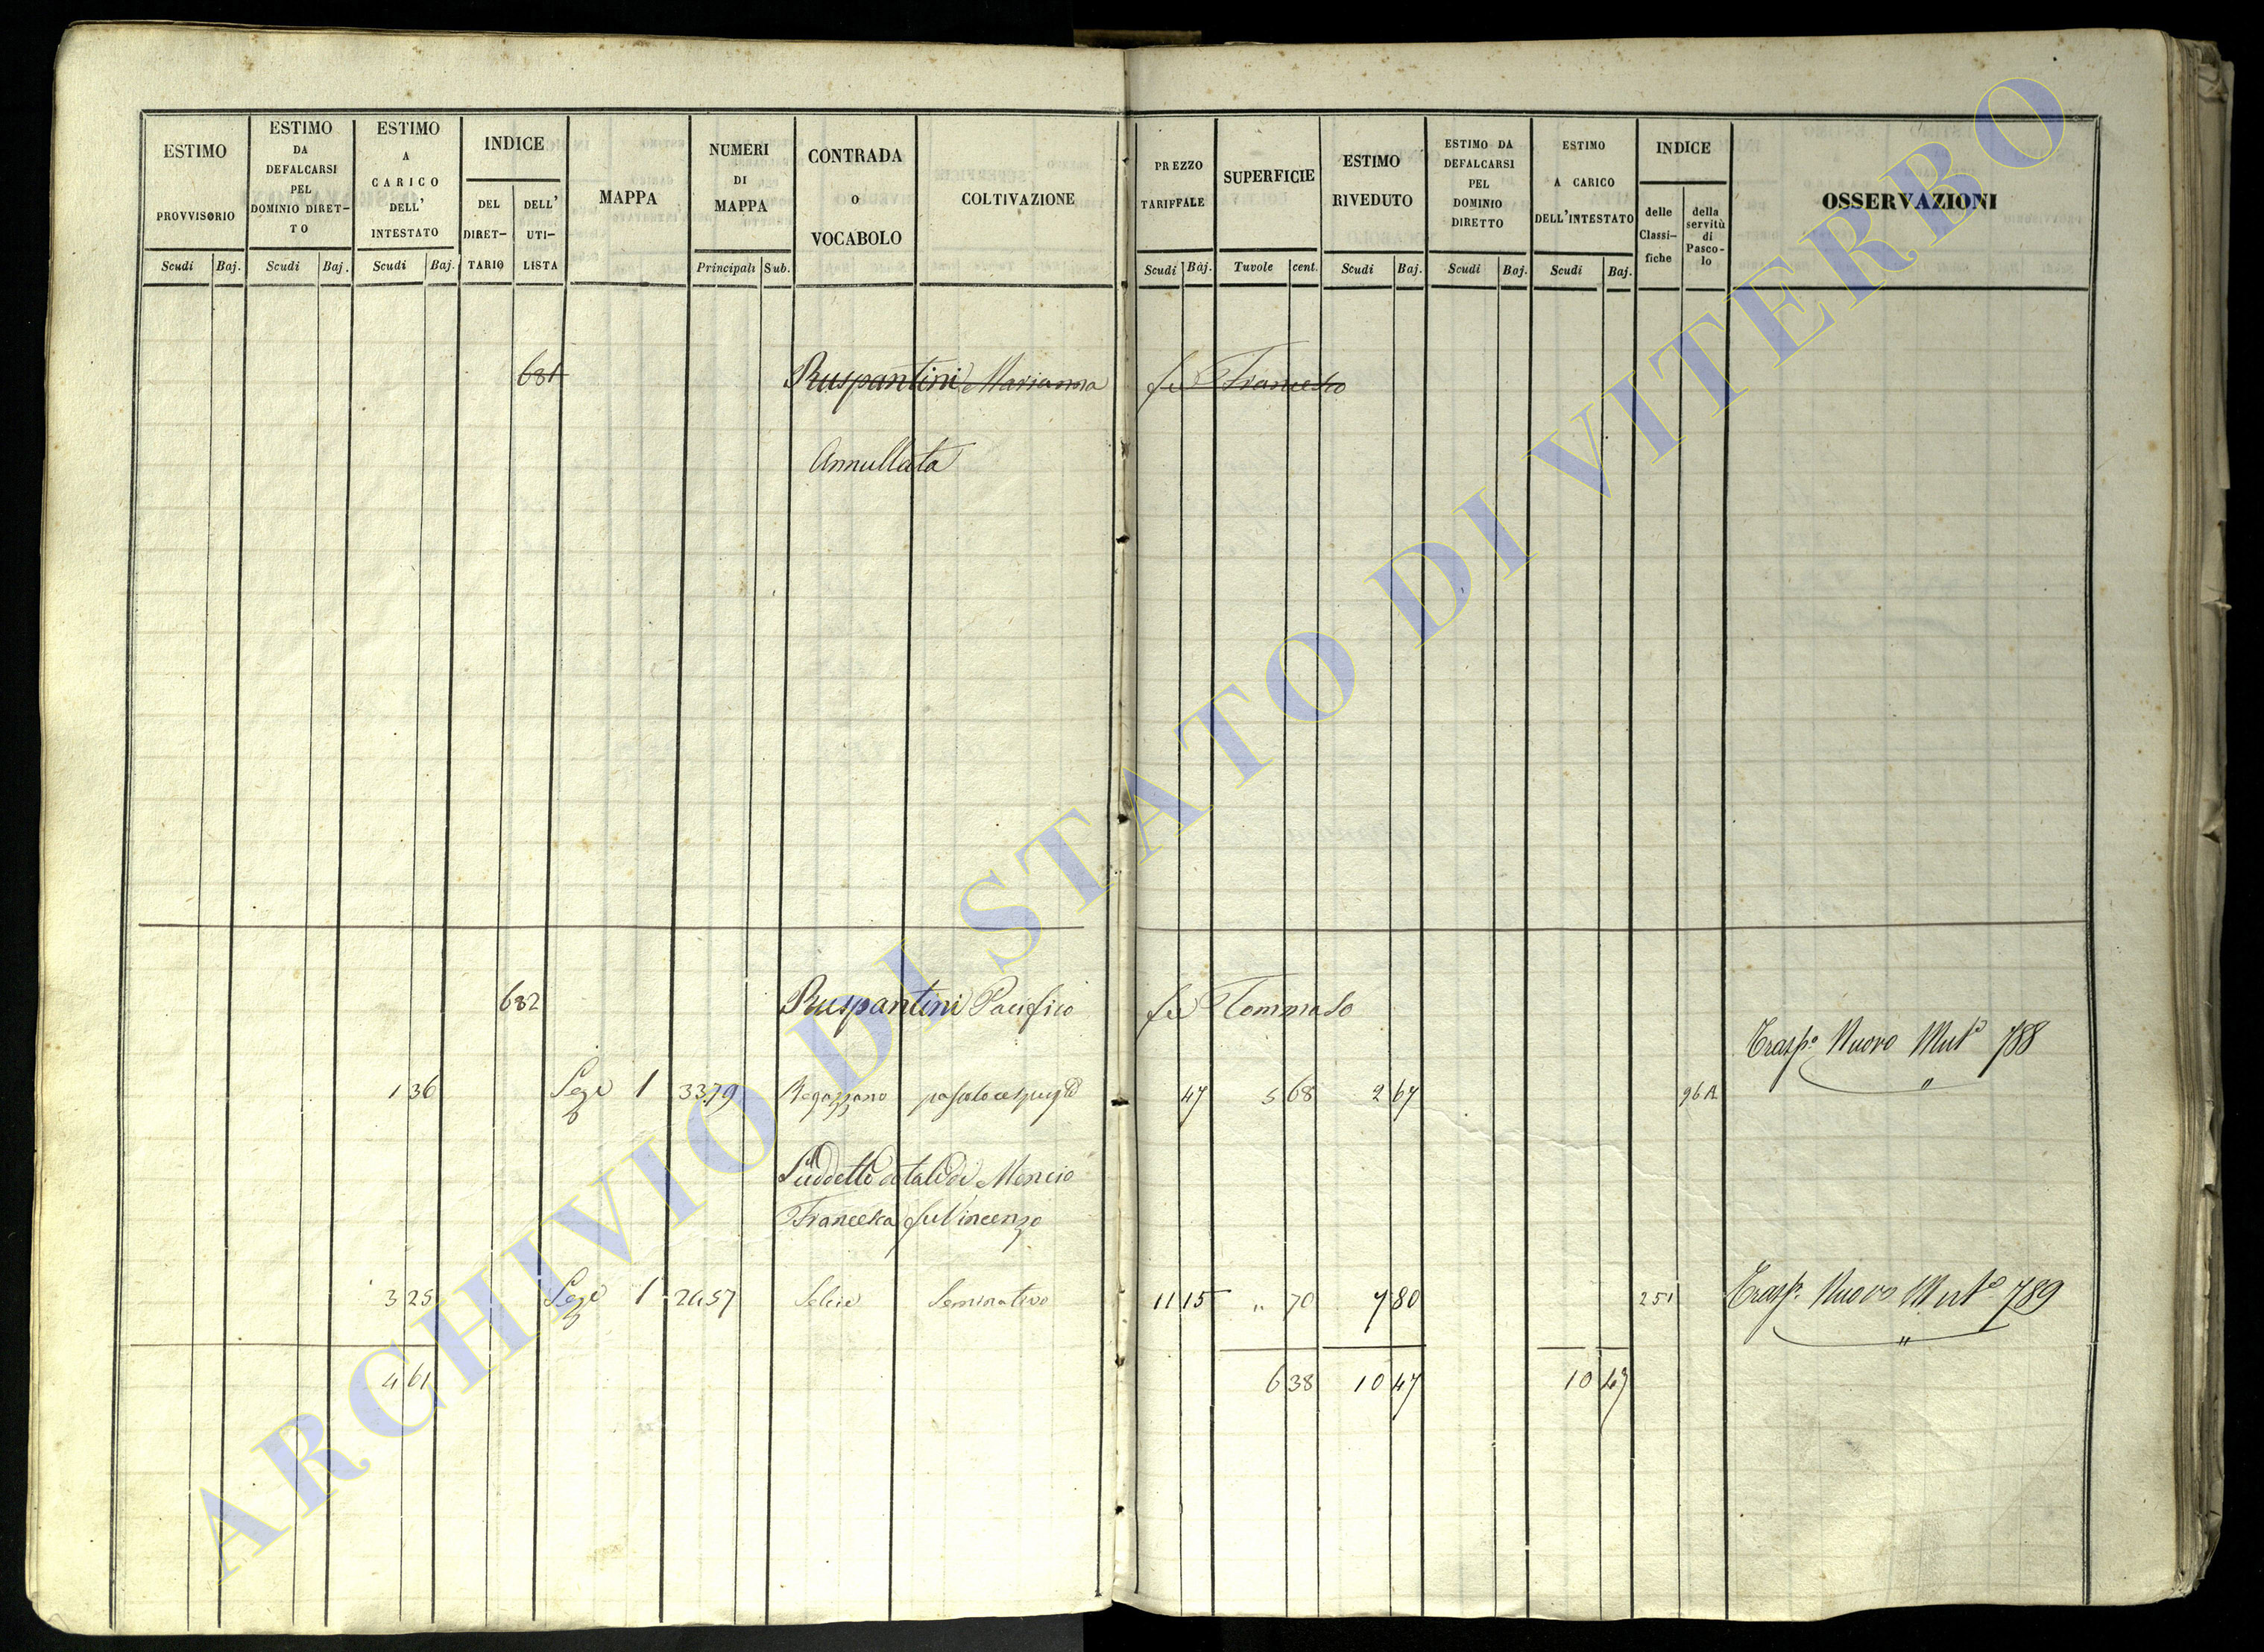 ESTIMO PROVVISORIO | ESTIMO DA DEFALCARSI PEL DOMINIO DIRET-TO | ESTIMO A CARICO DELL' INTESTATO | INDICE | MAPPA | NUMERI DI MAPPA | CONTRADA O VOCABOLO | COLTIVAZIONE | PREZZO TARIFFALE | SUPERFICIE | ESTIMO RIVEDUTO | ESTIMO DA DEFALCARSI PEL DOMINIO DIRETTO | ESTIMO A CARICO DELL'INTESTATO | INDICE | OSSERVAZIONI
DEL DIRET-TARIO | DELL' UTI-LISTA | delle Classi-fiche | della servitù di Pasco-lo
Scudi | Baj. | Scudi | Baj. | Scudi | Baj. | Principali | Sub. | Scudi | Baj. | Tavole | cent. | Scudi | Baj. | Scudi | Baj. | Scudi | Baj.
681 Ruspantini Marianna fu Francesco
Annullata
682 Ruspantini Pacifico fu Tommaso
Trasp.o Nuovo Mut.o 788
"
1 36 Sez.e 1 3379 Regazzano pascolo cespugl.o 47 5 68 2 67 96 A
Suddetto dotale di Mencio
Francesca fu Vincenzo
3 25 Sez.e 1 2657 Selcie Seminativo 11 15 " 70 7 80 251 Trasp.o Nuovo Mut.o 789
"
4 61 6 38 10 47 10 47
ARCHIVIO DI STATO DI VITERBO